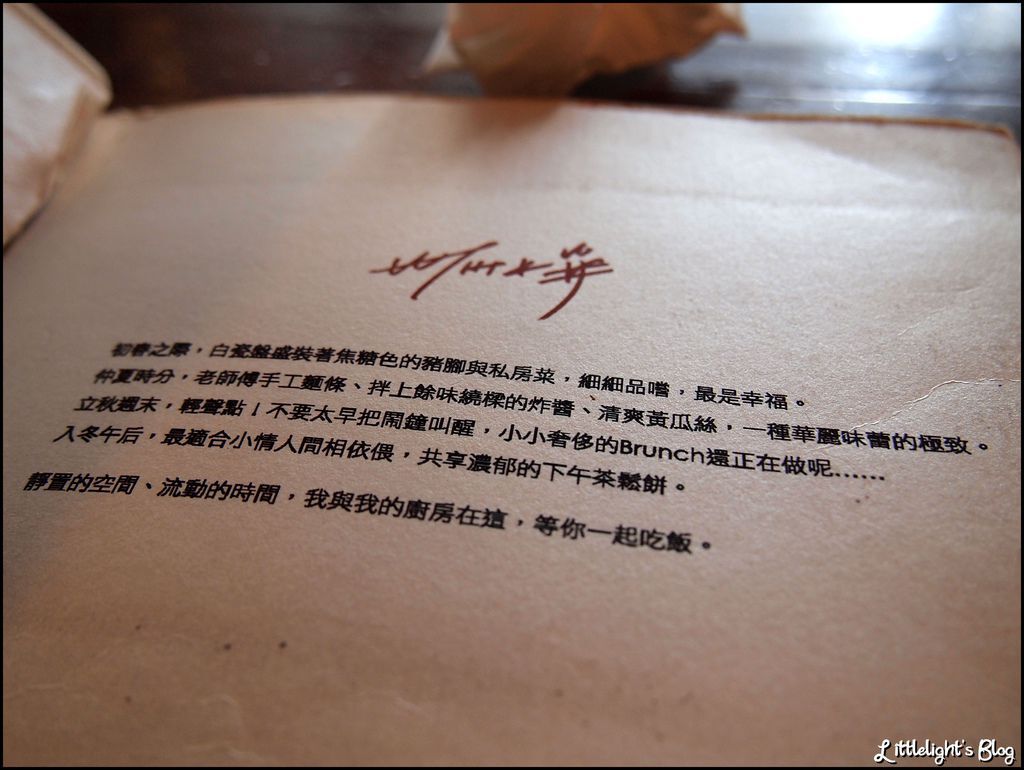 初春之際，白瓷盤盛裝著焦糖色的豬腳與私房菜，細細品嚐，最是幸福。
仲夏時分，老師傅手工麵條、拌上餘味繞樑的炸醬、清爽黃瓜絲，一種華麗味蕾的極致。
立秋週末，輕聲點！不要太早把鬧鐘叫醒，小小奢侈的Brunch還正在做呢......
入冬午后，最適合小情人間相依偎，共享濃郁的下午茶鬆餅。
靜置的空間、流動的時間，我與我的廚房在這，等你一起吃飯。
Littlelight's Blog